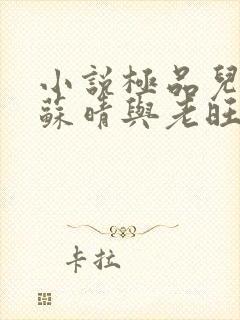 小説極品兒
蘇晴與老旺
卡拉